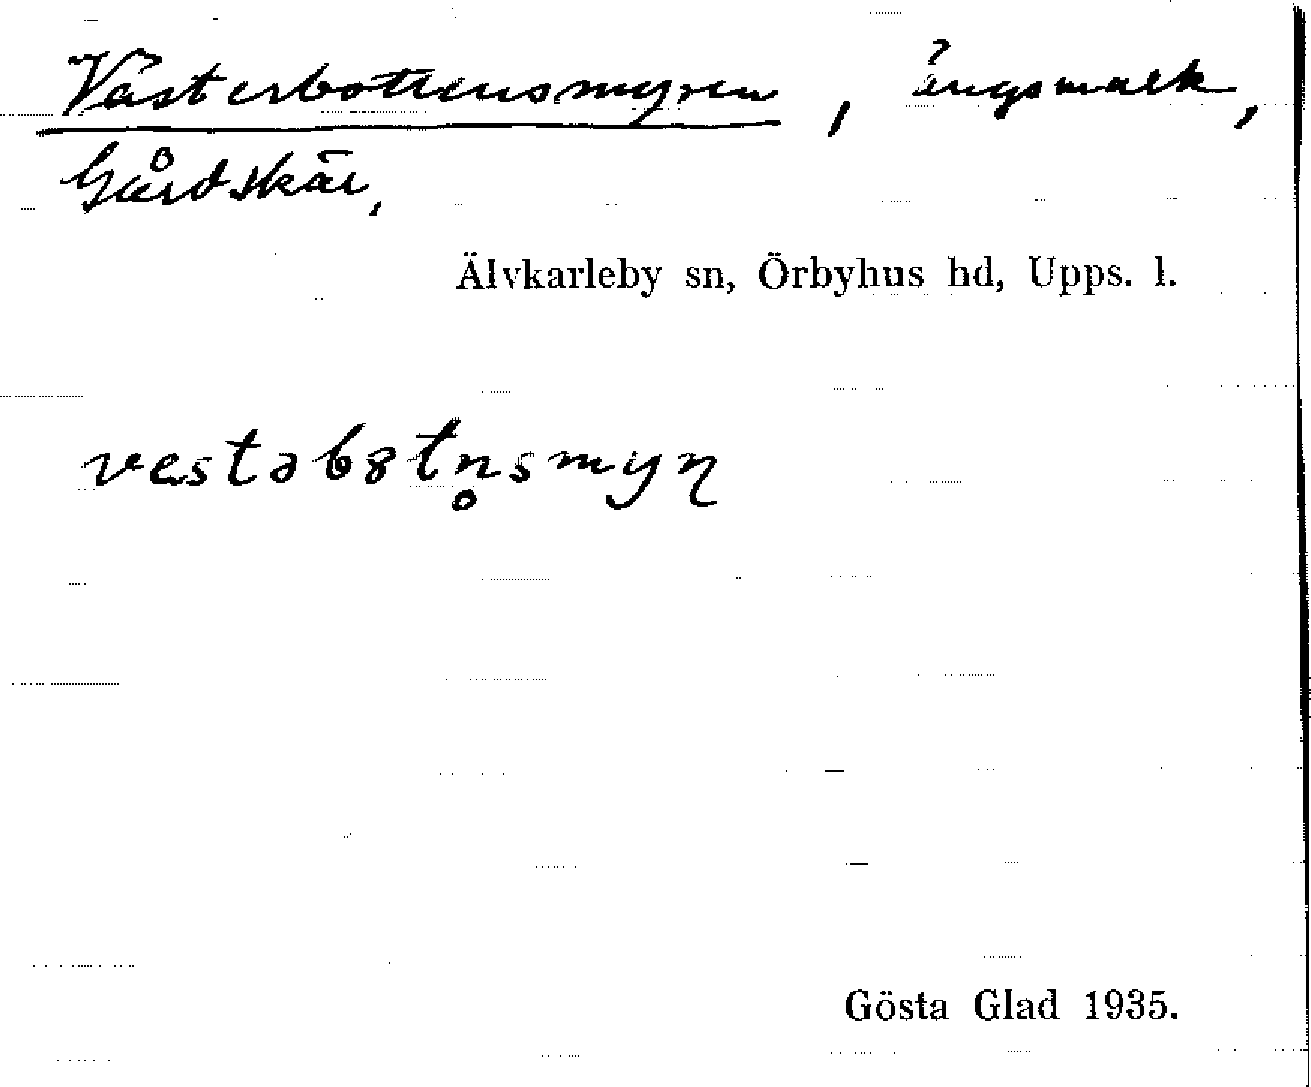 Västerbottensmyren, ängsmark,
Gårdskär,
Älvkarleby sn, Örbyhus hd, Upps. l.
vestəb8tn̥smyɳ
Gösta Glad 1935.